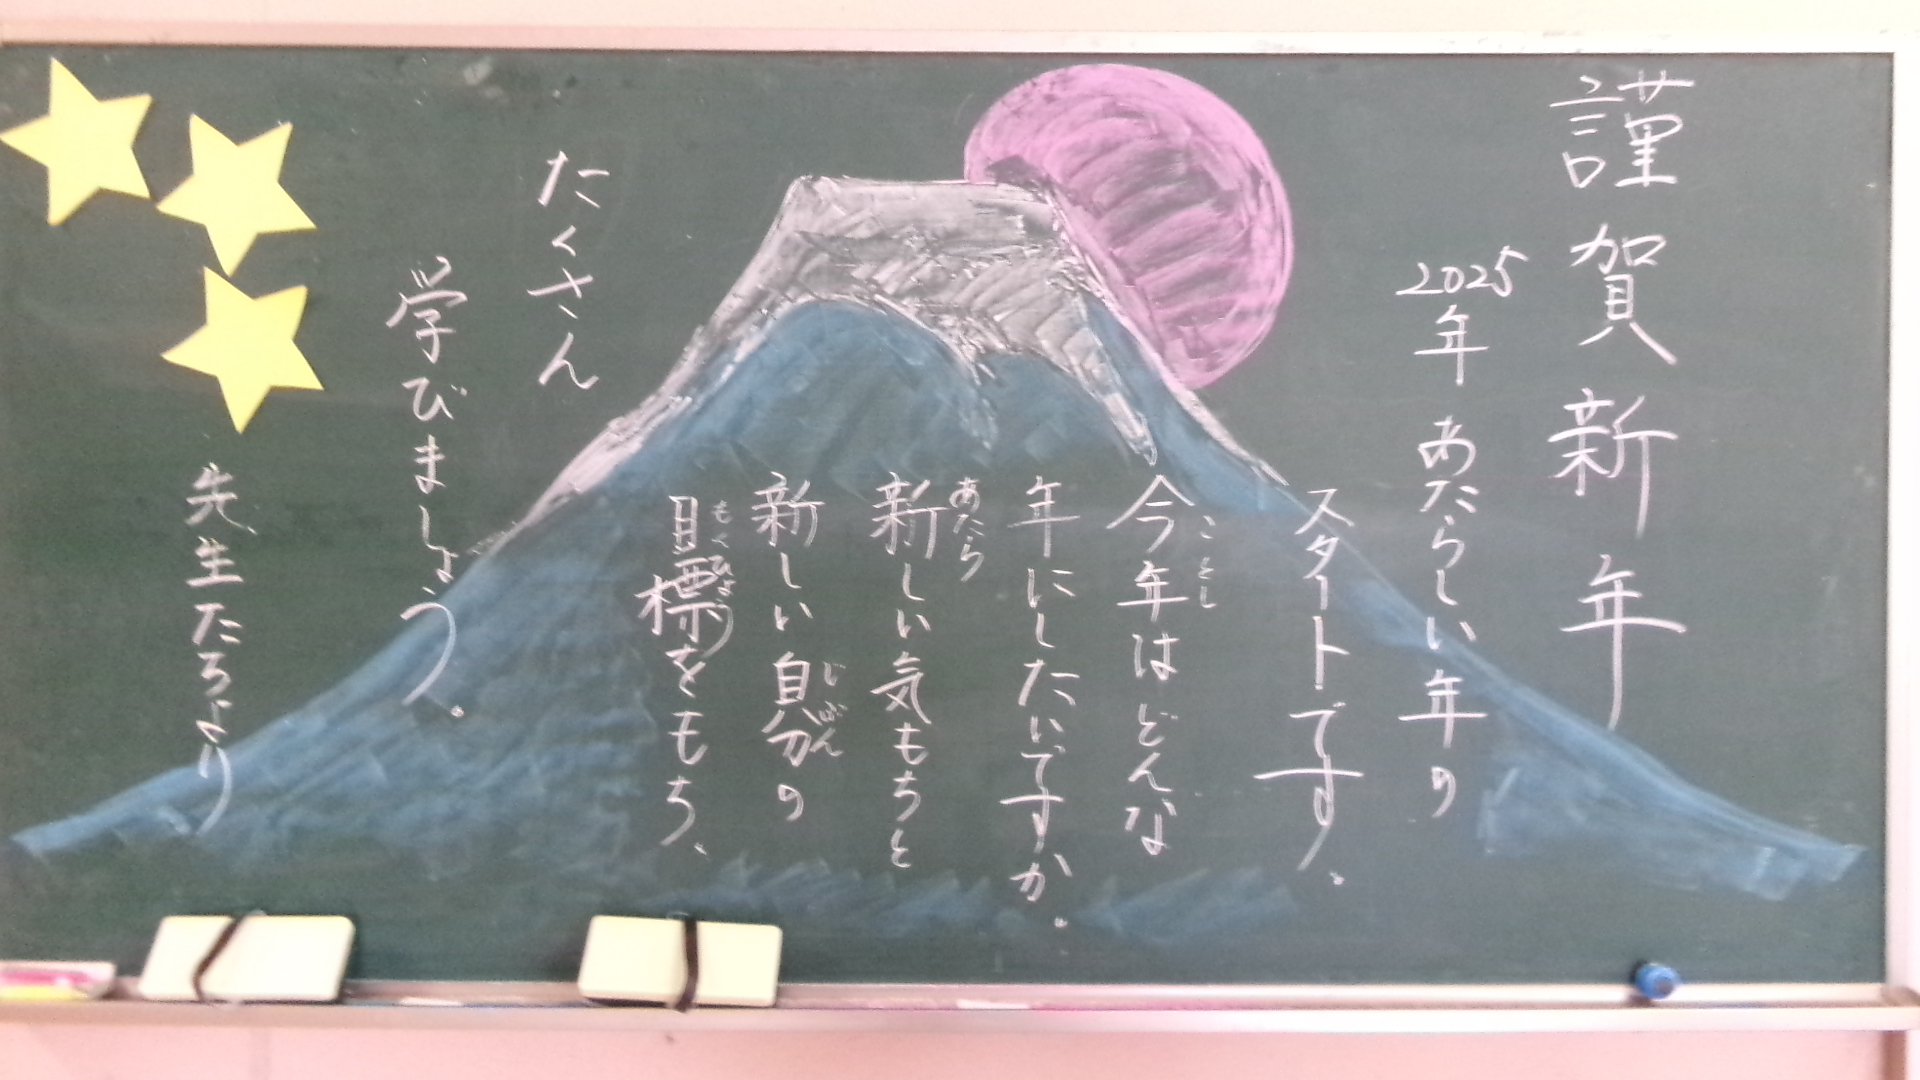 謹賀新年
2025年 あたらしい年の
スタートです。
今年はどんな
ことし
年にしたいですか。
新しい気もちと
あたら
新しい自分の
じぶん
目標をもち、
もくひょう
たくさん
学びましょう。
先生たちより